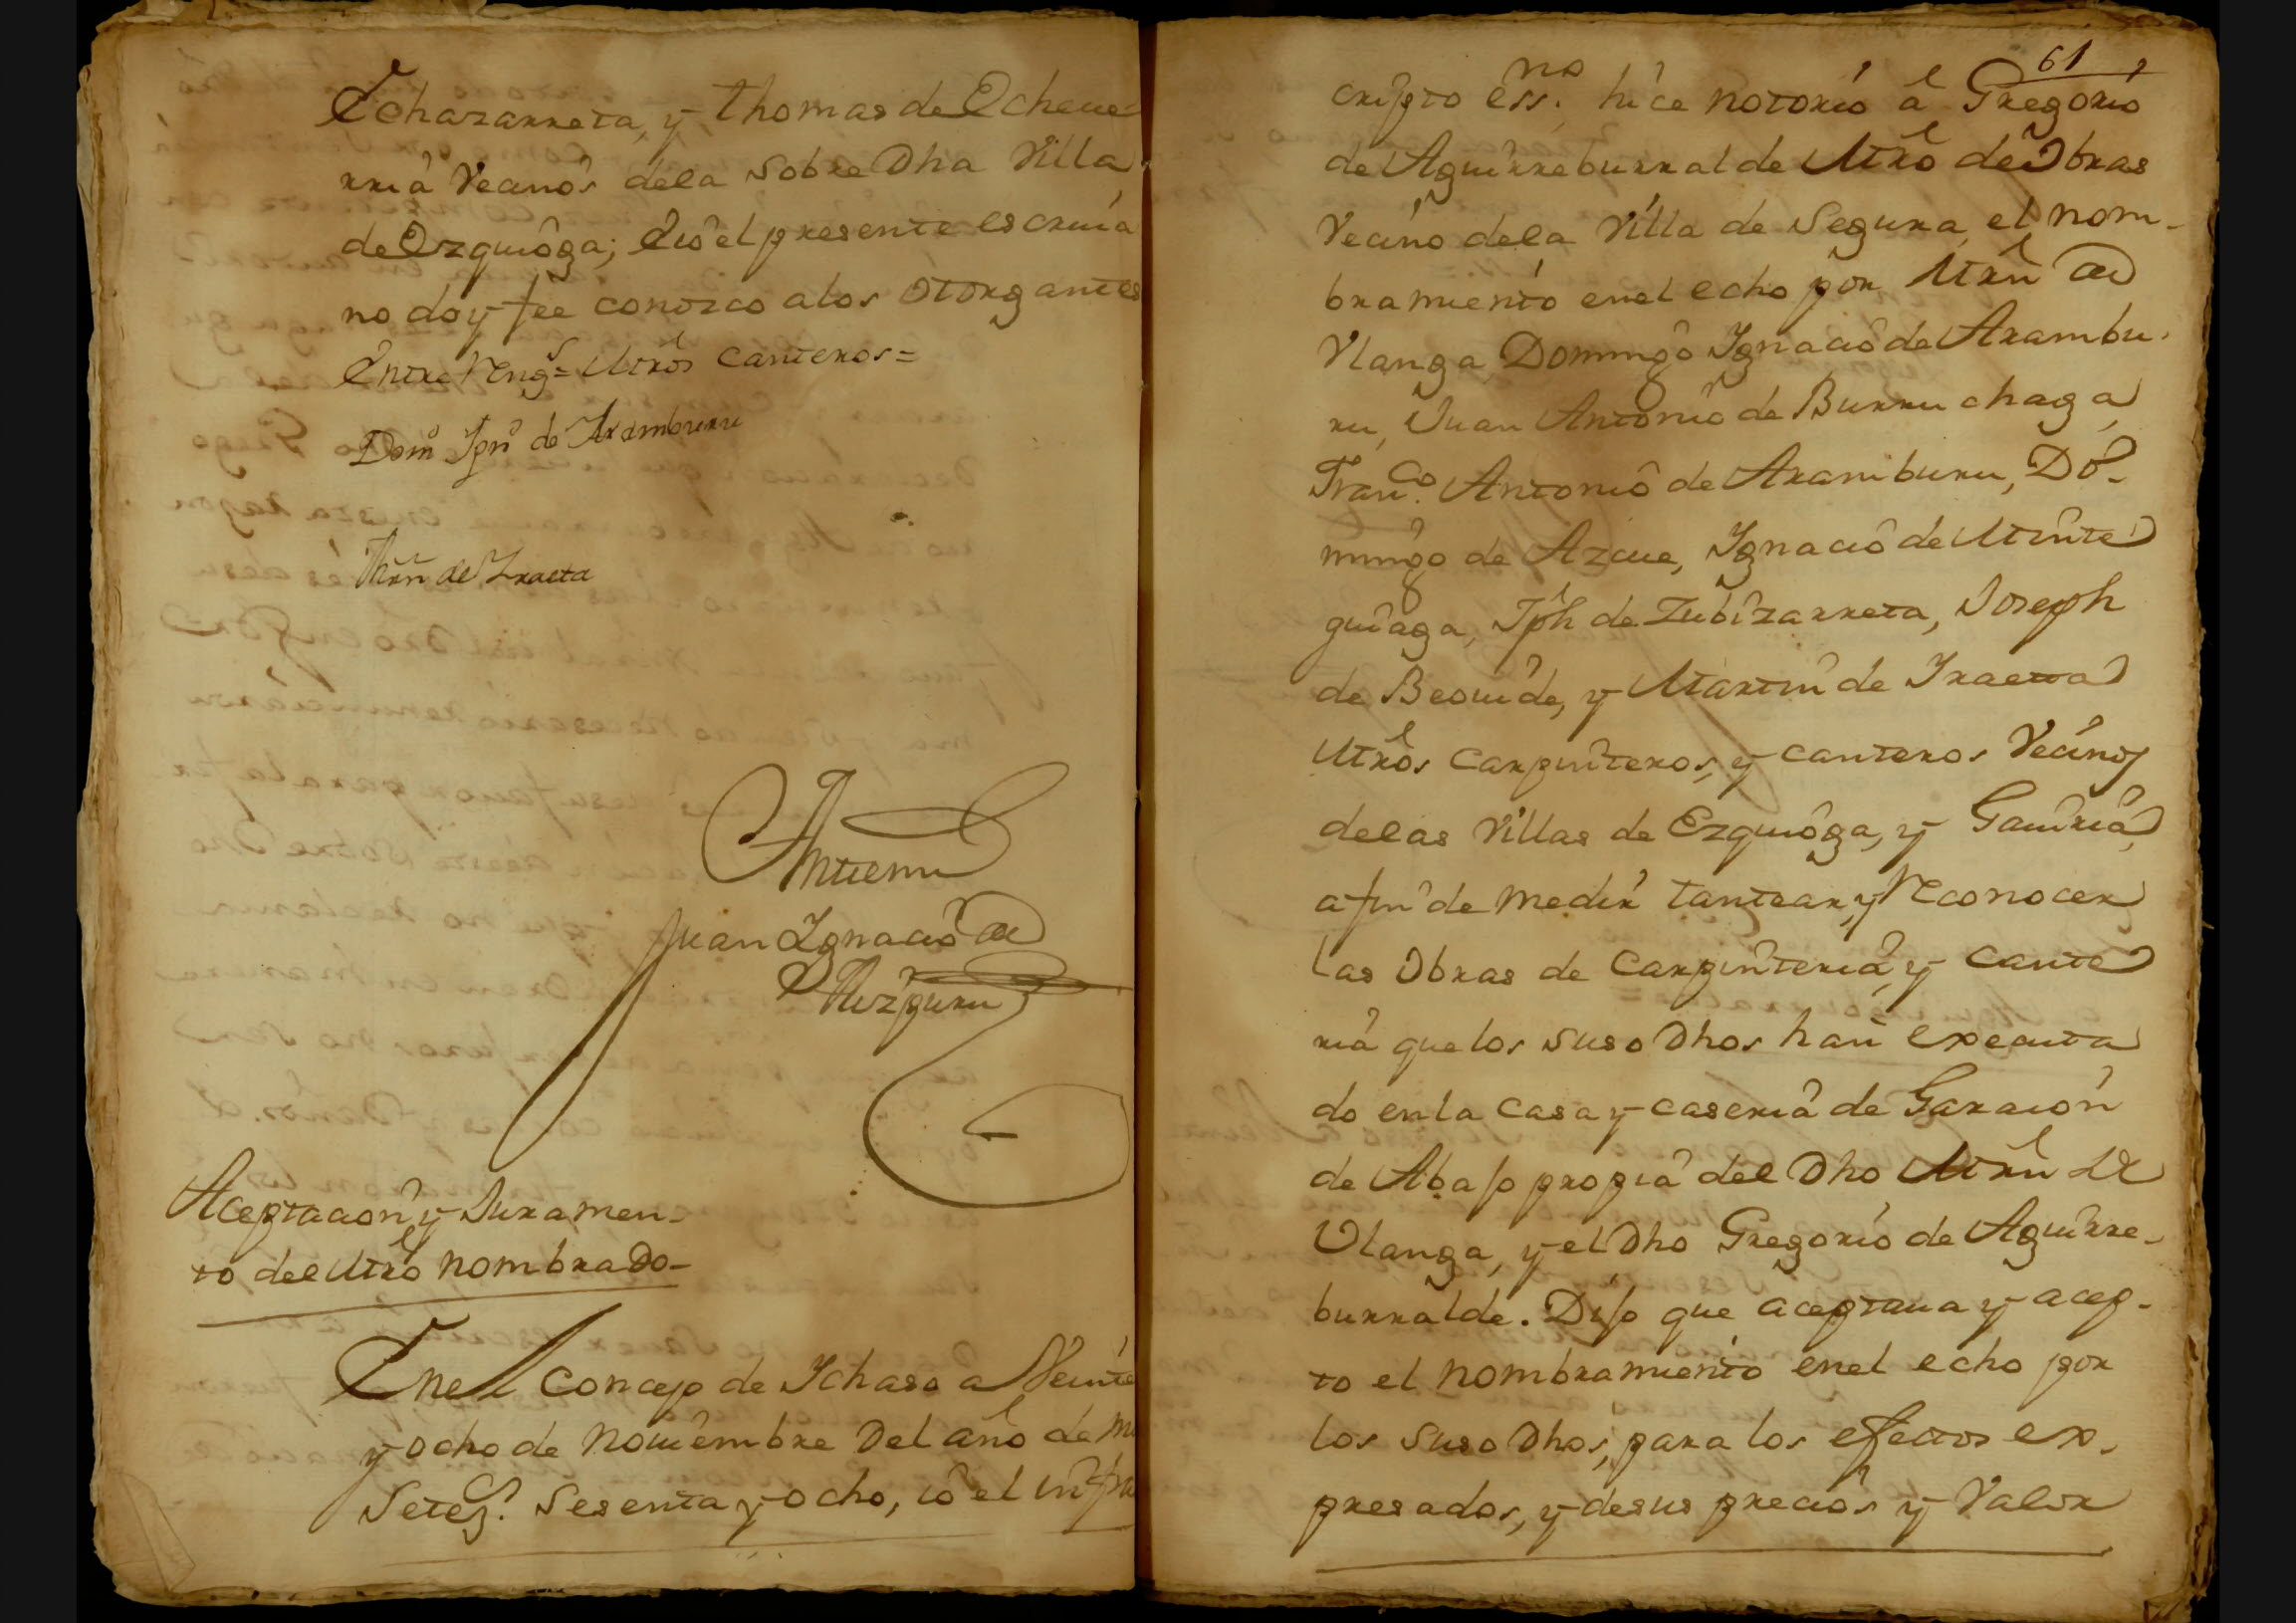 Echazarreta, y Thomas de Echeue=
rria Vecinos dela sobre Dha Villa
de Ezquioga; Eio el presente escriua
no doy fee conozco alos otorgantes
Entre Rengs= Mros canteros=
Domo Igno de Aramburu
Mrn de Iraeta
Antemi
Juan Ignacio de
Aizpuru
Aceptacion y Juramen-
to del Mro nombrado-
En el Concejo de Ichaso a Veinte
y ocho de Nouiembre Del año de m
Setezs. Sesenta y ocho, io el infra
61
cripto essno. hice notorio a Gregorio
de Aguirreburralde Mro de Obras
Vecino dela Villa de Segura, el nom-
bramiento enel echo por Mrn de
Vlanga, Domingo Ignacio de Arambu-
ru, Juan Antonio de Burruchaga,
Franco. Antonio de Aramburu, Do-
mingo de Azcue, Ignacio de Minte
guiaga, Jph de Zubizarreta, Joseph
de Beouide, y Martin de Iraeta
Mros Carpinteros, y canteros Vecinos
delas Villas de Ezquioga, y Gauiria,
a fin de medir tantear, y Reconocer
las Obras de Carpinteria, y Cante
ria que los suso Dhos han executa
do enla Casa y caseria de Garacion
de Abajo propia del Dho Mrn de
Vlanga, y el Dho Gregorio de Aguirre-
burralde. Dijo que aceptaua y acep-
to el nombramiento enel echo por
los suso Dhos, para los efectos ex-
presados, y de sus precios y Valor